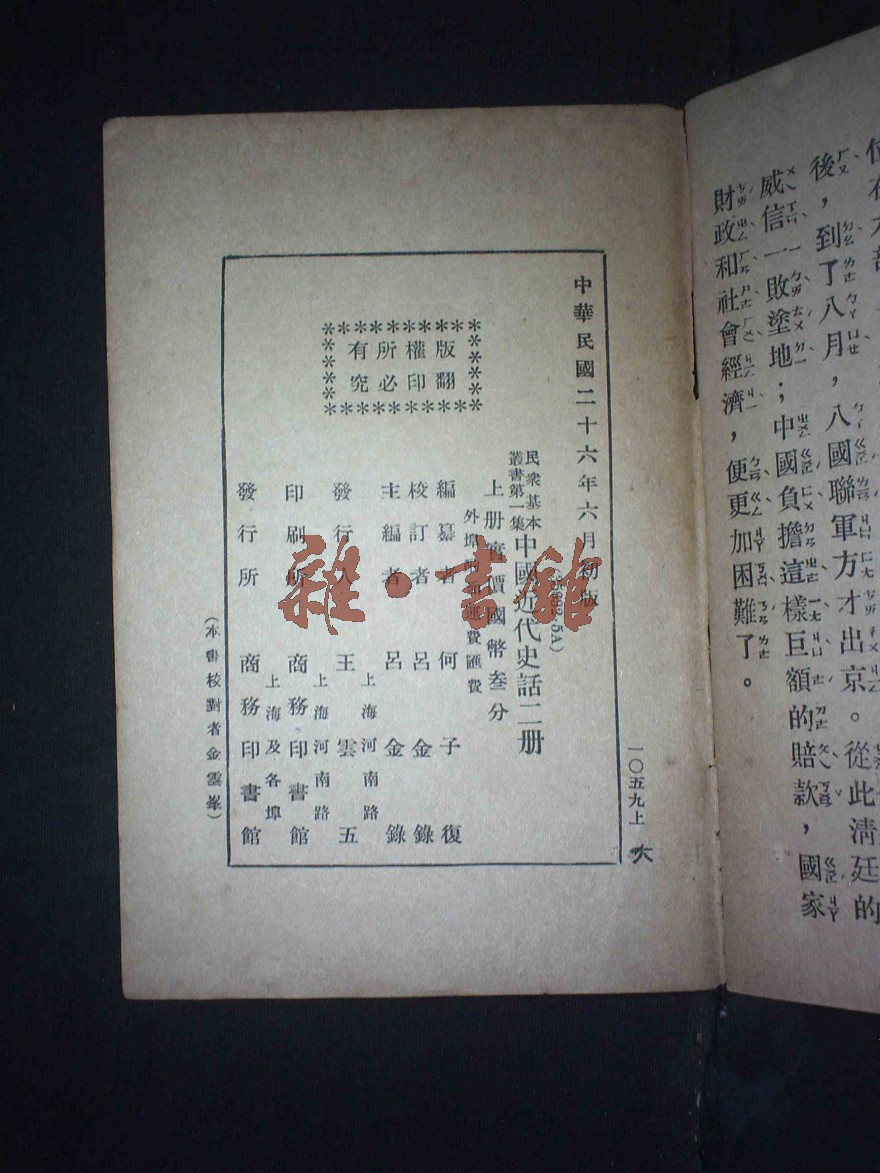 後，到了八月，八國聯軍方才出京。從此淸廷的
威信一敗塗地；中國負擔這樣巨額的賠款，國家
財政和社會經濟，便更加困難了。
一〇五九上
大
中華民國二十六年六月初版
民眾基本
叢書第一集
中國近代史話二册
上册實價國幣叁分
外埠
費匯費
版權所有
翻印必究
編纂者 何子復
校訂者 呂金錄
主編者 呂金錄
發行人 王雲五
上海河南路
印刷所 商務印書館
上海河南路
發行所 商務印書館
上海及各埠
（本書校對者金雲峯）
雜·書館